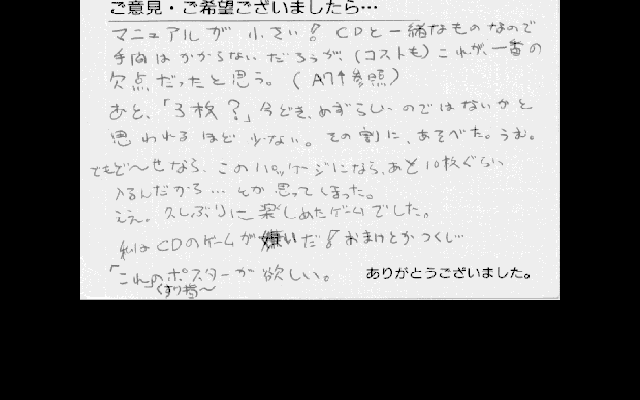 ご意見・ご希望ございましたら…
マニュアルが 小さい! CDと一緒なものなので
手間はかからないだろうが、(コストも)これが、一番の
欠点だったと思う。( A7↑参照)
あと、「3枚?」今どき、めずらしいのではないかと
思われるほど 少ない。その割に、あそべた。うむ。
でもど〜せなら、このパッケージになら、あと10枚ぐらい
入るんだから… とか思ってしまった。
ええ。久しぶりに楽しめたゲームでした。
私はCDのゲームが嫌いだ! おまけとかつくし…
「これ」のポスターが欲しい。
くすり指〜
ありがとうございました。